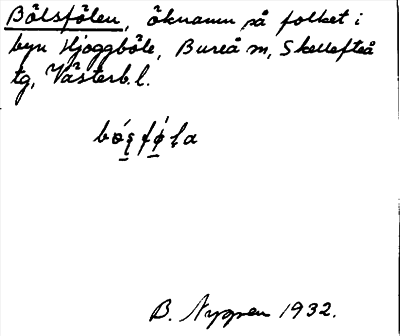 Bölsfölen, öknamn på folket i
byn Hjoggböle, Bureå m, Skellefteå
tg, Västerb. l.
bǿȿfǿḷa
B. Nygren 1932.